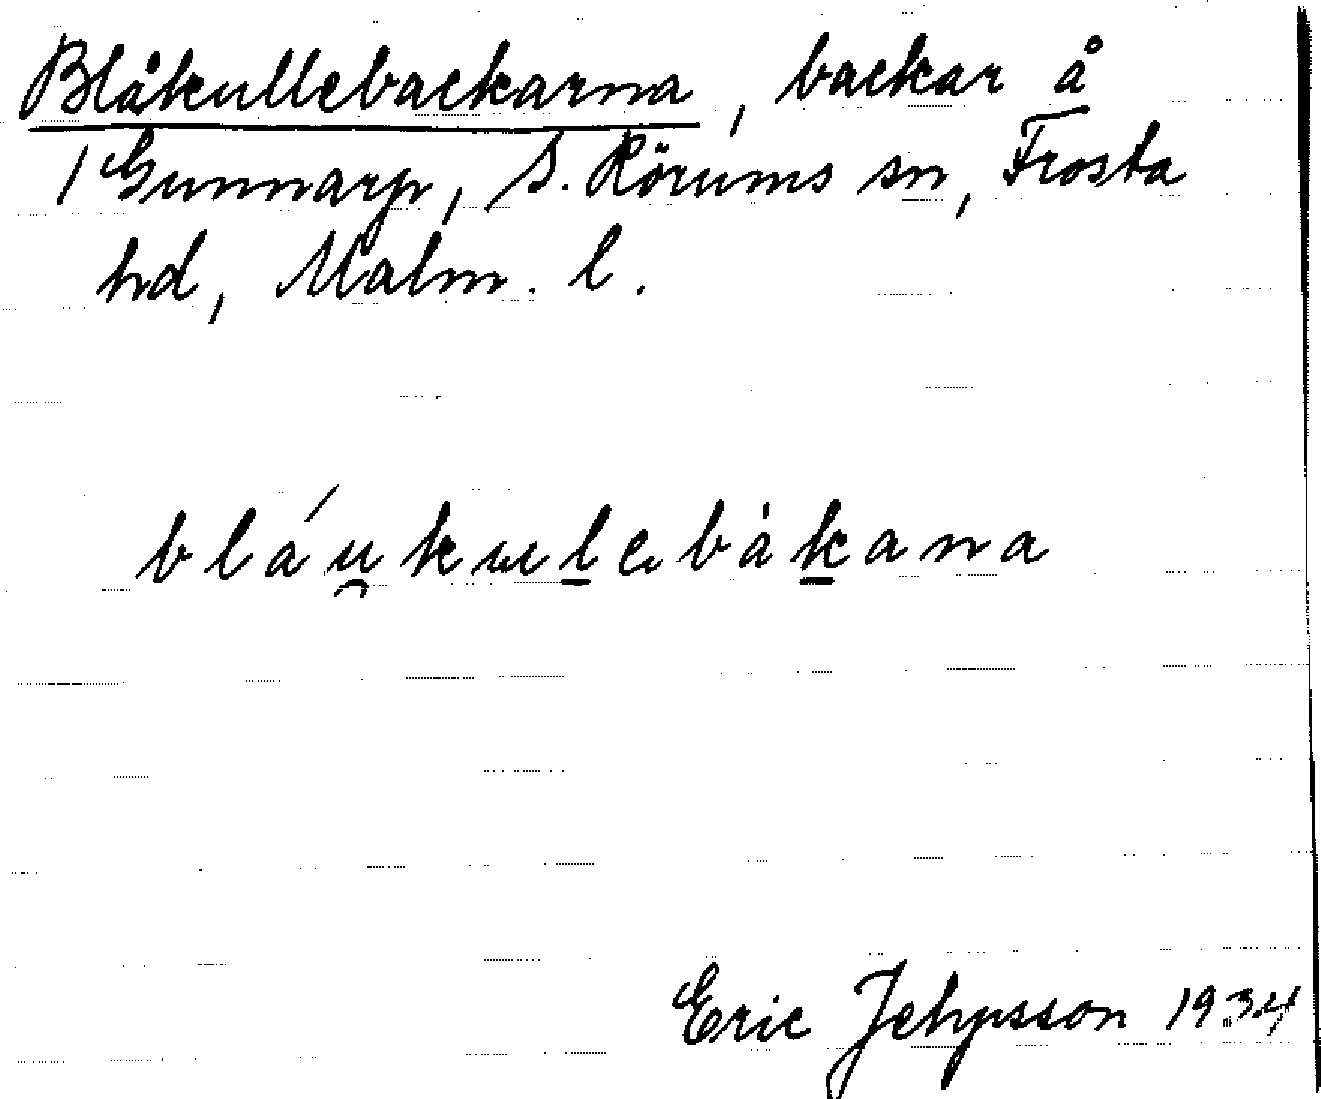 Blåkullebackarna, backar å
1 Gunnarp, S. Rörums sn, Frosta
hd, Malm. l.
bláu̯kulebàkana
Eric Jehpsson 1934